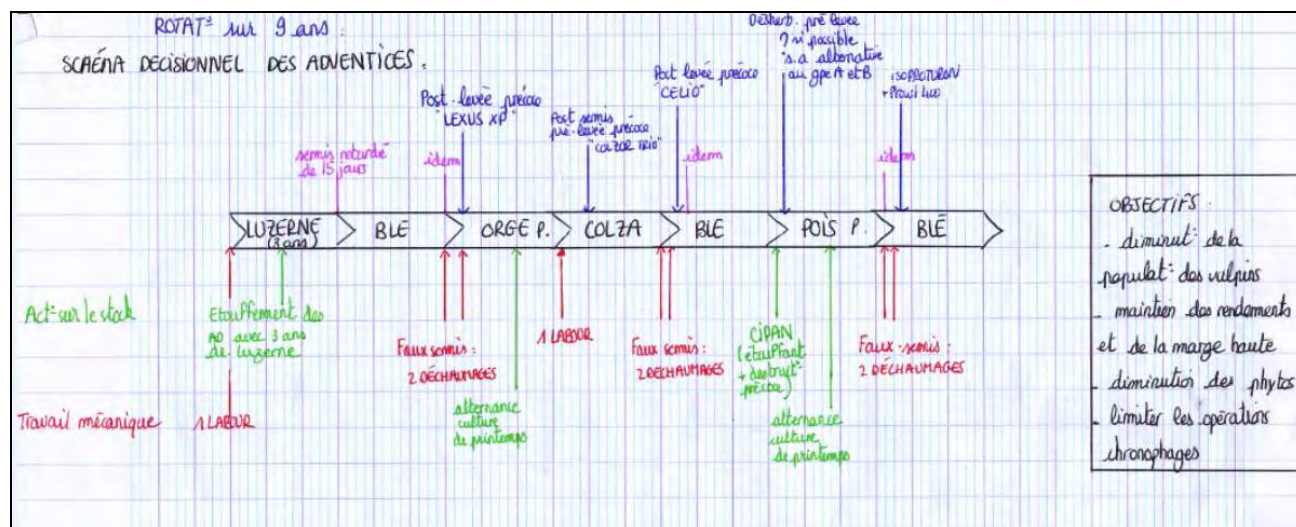 ROTAT° sur 9 ans :
SCHÉMA DECISIONNEL DES ADVENTICES.
semis retardé
de 15 jours
idem
Post-levée précoce
"LEXUS XP"
Post semis
pré-levée précoce
"COLZOR TRIO"
Post levée précoce
"CELIO"
idem
Desherb. pré levée
? si possible
s.a alternative
au gpe A et B
idem
ISOPROTURON
+ Prowl 400
LUZERNE
(3 ans)
BLÉ
ORGE P.
COLZA
BLÉ
POIS P.
BLÉ
Act° sur le stock
Etouffement des
AD avec 3 ans
de luzerne
Travail mécanique
1 LABOUR
Faux semis :
2 DÉCHAUMAGES
alternance
culture
de printemps
1 LABOUR
Faux semis :
2 DÉCHAUMAGES
CIPAN
(étouffant
+ destruct°
précoce)
alternance
culture
de printemps
Faux-semis :
2 DÉCHAUMAGES
OBJECTIFS :
- diminut° de la
populat° des vulpins
- maintien des rendements
et de la marge haute
- diminution des phytos
- limiter les opérations
chronophages